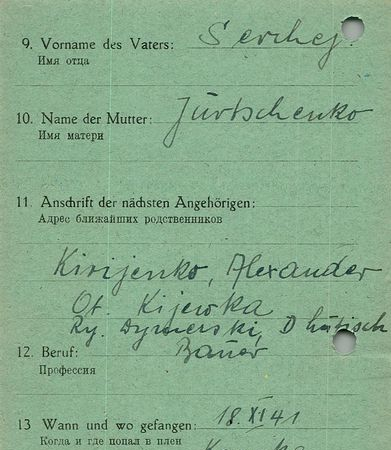 9. Vorname des Vaters: Serhej.
Имя отца
10. Name der Mutter: Jürtschenko
Имя матери
11. Anschrift der nächsten Angehörigen:
Адрес ближайших родственников
Kirijenko, Alexander
Ot. Kijewka
Ry. Dymerski, D
12. Beruf: Bauer
Профессия
13 Wann und wo gefangen: 18. XI 41
Когда и где попал в плен